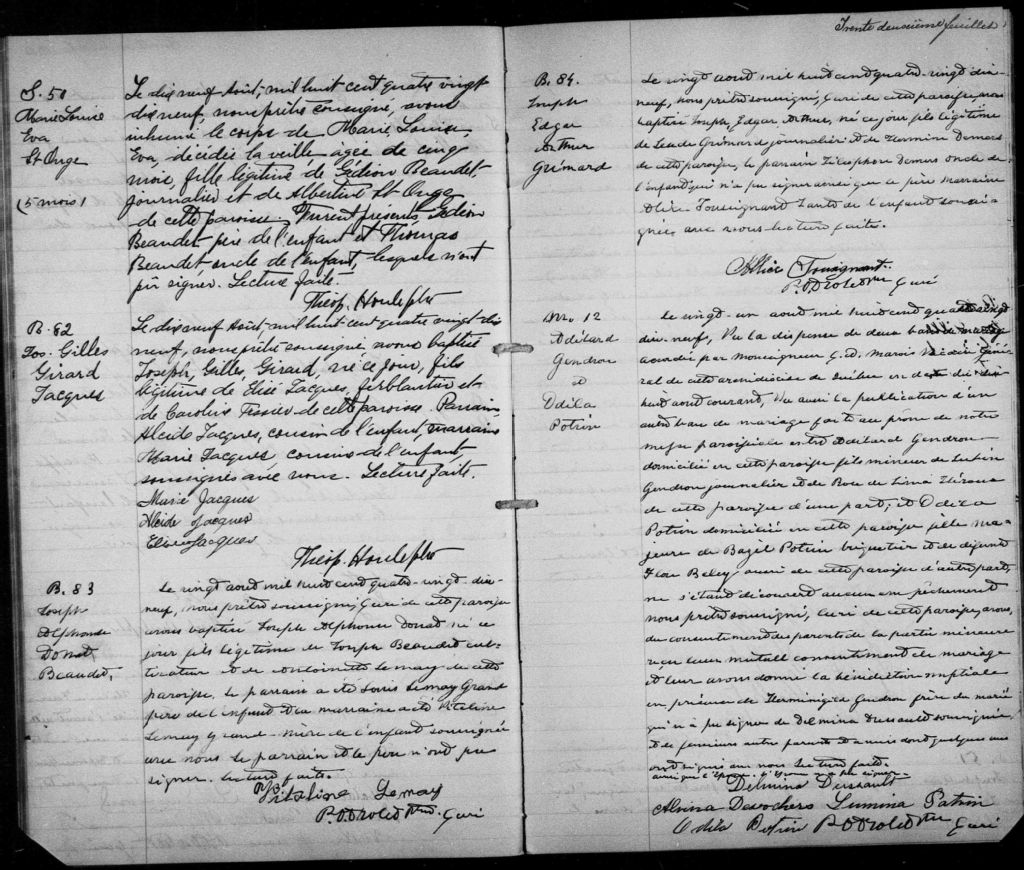 S. 50
Marie Louise
Eva
St Onge
(5 mois)
Le dix neuf Août, mil huit cent quatre vingt
dix neuf, nous prêtre soussigné, avons
inhumé le corps de Marie Louise
Eva, décédée la veille agée de cinq
mois, fille légitime de Gédion Beaudet
journalier et de Albertine St Onge
de cette paroisse. Furent présents Gédion
Beaudet père de l'enfant et Thomas
Beaudet oncle de l'enfant, lesquels n'ont
pu signer. Lecture faite.
Théop. Houle ptre
B. 82
Jos. Gilles
Girard
Jacques
Le dix neuf Août, mil huit cent quatre vingt-dix
neuf, nous prêtre soussigné, avons baptisé
Joseph, Gilles, Girard, né ce jour, fils
légitime de Elie Jacques, ferblantier et
de Caroline Tessier de cette paroisse. Parrain
Alcide Jacques, cousin de l'enfant, marraine
Marie Jacques cousine de l'enfant
soussignés avec nous. Lecture faite.
Marie Jacques
Alcide Jacques
Elie Jacques
Théop. Houle ptre
B. 83
Joseph
Alphonse
Donat
Beaudet.
Le vingt aout mil huit cent quatre-vingt-dix-
neuf, nous prêtre soussigné, Curé de cette paroisse
avons baptisé Joseph Alphonse Donat né ce
jour fils légitime de Joseph Beaudet cul-
tivateur et de Antoinette Lemay de cette
paroisse. le parrain a été Louis Lemay Grand
père de l'enfant et la marraine a été Vitaline
Lemay grand-mère de l'enfant soussignée
avec nous le parrain et le père n'ont pu
signer. lecture faite.
Vitaline Lemay
P. O. Drolet Ptre. Curé
Trente deuxième feuillet
B. 84.
Joseph
Edgar
Arthur
Grimard
Le vingt aout mil huit cent quatre-vingt dix-
neuf, nous prêtre soussigné, Curé de cette paroisse, avons
baptisé Joseph, Edgar Arthur, né ce jour fils légitime
de Grimard journalier et de Hermine Demers
de cette paroisse, le parrain Télesphore Demers oncle de
l'enfant qui n'a pu signer ainsi que le père marraine
Alice Tousignant tante de l'enfant soussi-
gnée avec nous. lecture faite.
Alice Tousignant.
P. O. Drolet Ptre Curé
M. 12
Adélard
Gendron
et
Odila
Potvin
Le vingt-un aout mil huit cent quatre vingt
dix-neuf, Vu la dispense de deux bans de mariage
accordée par Monseigneur C. A. Marois Vicaire Géné-
ral de cette archidiocèse de Québec en date du dix
huit aout courant, Vu aussi la publication d'un
autre ban de mariage faite au prône de notre
messe paroissiale entre Adélard Gendron
domicilié en cette paroisse fils mineur de
Gendron journalier et de Rose de Lima
de cette paroisse d'une part; et Odila
Potvin domiciliée en cette paroisse fille ma-
jeure de Bazil Potvin briquetier et de défunte
Flore aussi de cette paroisse d'autre part,
ne s'étant découvert aucun empêchement
nous prêtre soussigné, Curé de cette paroisse, avons,
du consentement des parents de la partie mineure
reçu leur mutuel consentement de mariage
et leur avons donné la bénédiction nuptiale
en présence de Herménégilde Gendron frère du marié
qui n'a pu signer de Delmina Dussault soussignée,
et de plusieurs autres parents et amis dont quelques uns
ont signé avec nous. Lecture faite.
Delmina Dussault
Alvina Desrochers Lumina Patvin
Odila Potvin P. O. Drolet Ptre Curé